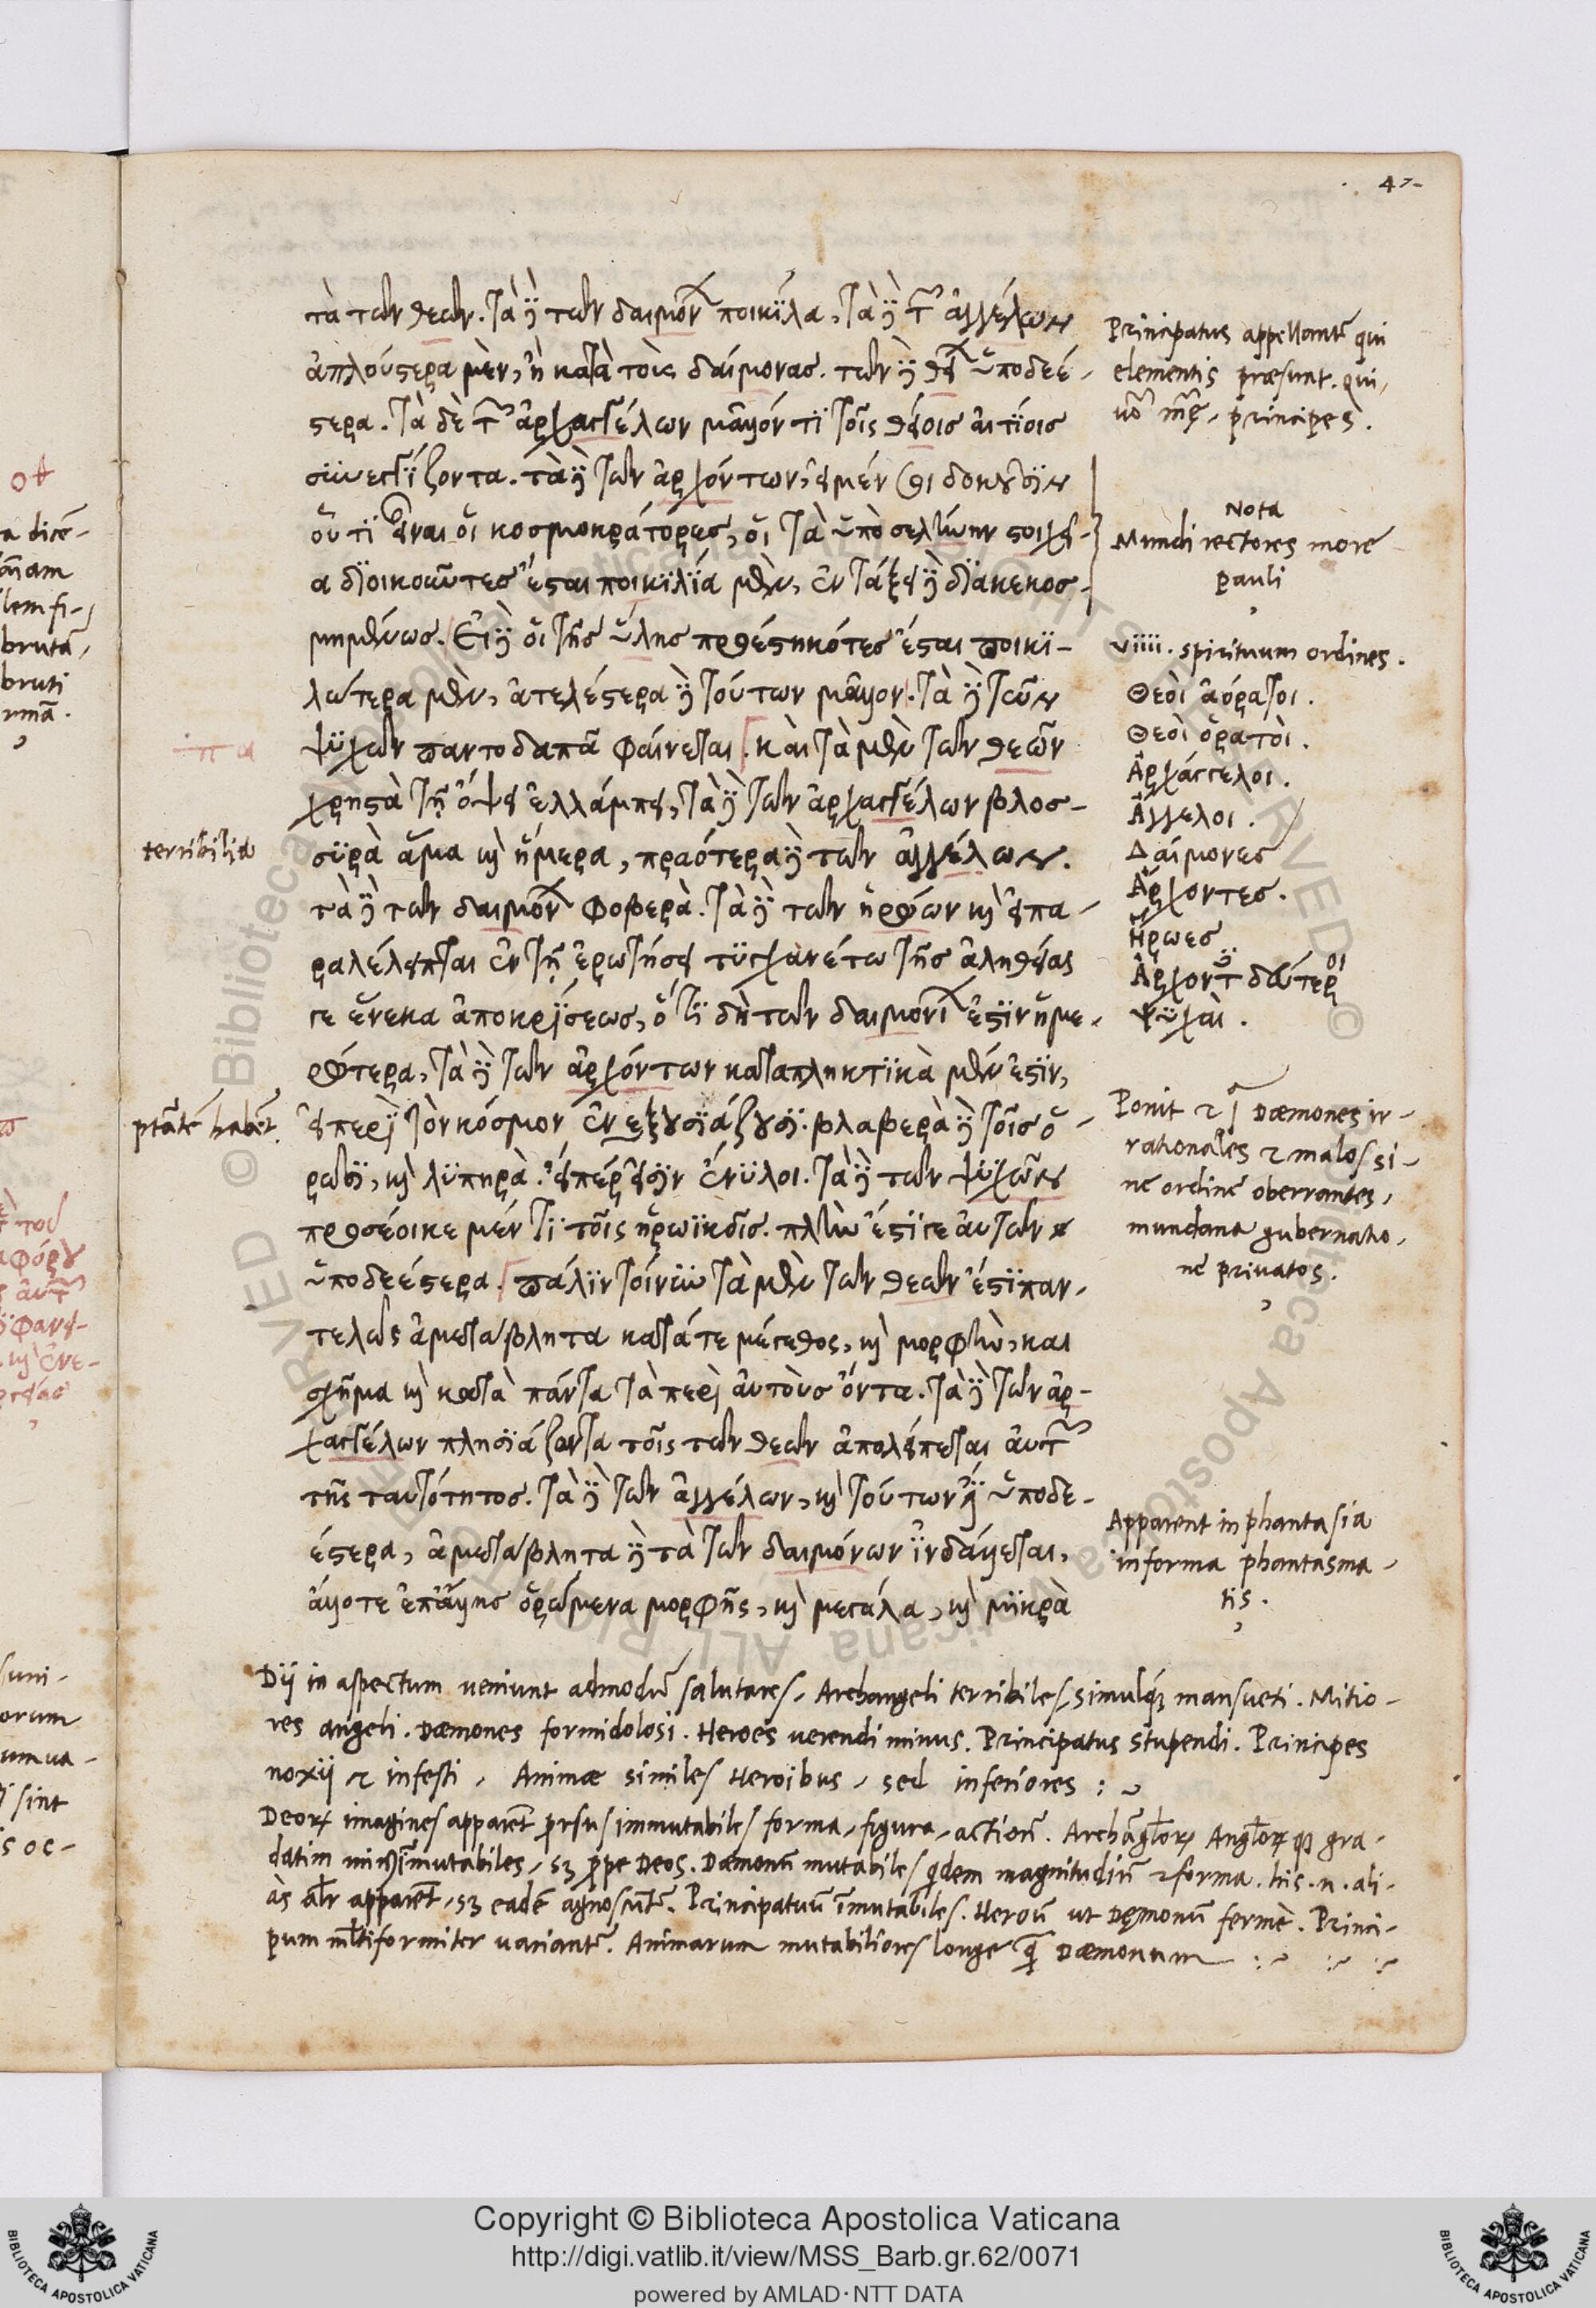 47
τὰ τῶν θεῶν. τὰ δὲ τῶν δαιμόνων ποικίλα, τὰ δὲ τῶν ἀγγέλων
ἁπλούστερα μὲν, ἢ κατὰ τοὺς δαίμονας. τῶν δὲ θείων ὑποδεέ-
στερα. τὰ δὲ τῶν ἀρχαγγέλων μᾶλλόν τι τοῖς θείοις αἰτίοις
συνεγγίζοντα. τὰ δὲ τῶν ἀρχόντων, εἰ μέν σοι δοκοῦσιν
οὗτοι εἶναι οἱ κοσμοκράτορες, οἱ τὰ ὑπὸ σελήνην στοιχεῖ-
α διοικοῦντες ἔσται ποικίλα μὲν, ἐν τάξει δὲ διακεκοσ-
μημένως. Εἰ δὲ οἱ τῆς ὕλης προεστηκότες ἔσται ποικι-
λώτερα μὲν, ἀτελέστερα δὲ τούτων μᾶλλον. τὰ δὲ τῶν
ψυχῶν παντοδαπὰ φαίνεται. καὶ τὰ μὲν τῶν θεῶν
χρηστὰ τῇ ὄψει ἐλλάμπει, τὰ δὲ τῶν ἀρχαγγέλων βλοσ-
συρὰ ἅμα καὶ ἥμερα, πραότερα δὲ τῶν ἀγγέλων.
τὰ δὲ τῶν δαιμόνων φοβερά. τὰ δὲ τῶν ἡρώων καὶ εἰ πα-
ραλέλειπται ἐν τῇ ἐρωτήσει τυγχανέτω τῆς ἀληθείας
γε ἕνεκα ἀποκρίσεως, ὅτι δὴ τῶν δαιμόνων ἐστὶν ἡμε-
ρώτερα, τὰ δὲ τῶν ἀρχόντων καταπληκτικὰ μέν ἐστιν,
εἰ περὶ τὸν κόσμον ἐνεξουσιάζουσι. βλαβερὰ δὲ τοῖς ὁ-
ρῶσι, καὶ λυπηρὰ. εἴπερ εἰσὶν ἔνυλοι. τὰ δὲ τῶν ψυχῶν
προσέοικε μέν τι τοῖς ἡρωϊκοῖς. πλὴν ἔστι γε αὐτῶν
ὑποδεέστερα. πάλιν τοίνυν τὰ μὲν τῶν θεῶν ἐστι παν-
τελῶς ἀμετάβλητα κατά τε μέγεθος, καὶ μορφὴν, καὶ
σχῆμα καὶ κατὰ πάντα τὰ περὶ αὐτοὺς ὄντα. τὰ δὲ τῶν ἀρ-
χαγγέλων πλησιάζοντα τοῖς τῶν θεῶν ἀπολείπεται αὐτῶν
τῆς ταυτότητος. τὰ δὲ τῶν ἀγγέλων, καὶ τούτων ἐστὶ ὑποδε-
έστερα, ἀμετάβλητα δὲ τὰ τῶν δαιμόνων ἰνδάλλεται,
ἄλλοτε ἐπ' ἄλλης ὁρώμενα μορφῆς, καὶ μεγάλα, καὶ μικρὰ
terribilia
ptātē habēt.
Principatus appellantr qui
elementis præsunt. qui
uō mrę, principes.
Nota
Mundi rectores more
pauli
viiii. spirituum ordines.
Θεοὶ ἀόρατοι.
Θεοὶ ὁρατοὶ.
Ἀρχάγγελοι.
Ἄγγελοι.
Δαίμονες
Ἄρχοντες.
Ἥρωες
Ἀρχοντ δεύτεροι
Ψυχαὶ.
Ponit et Dæmones ir-
rationales et malos si-
ne ordine oberrantes,
mundana gubernatio-
ne privatos.
Apparent in phantasia
in forma phantasma-
tis.
Dij in aspectum veniunt admodū salutares, Archangeli terribiles, simulq; mansueti. Mitio-
res angeli. Dæmones formidolosi. Heroes uerendi minus. Principatus stupendi. Principes
noxij et infesti, Animæ similes Heroibus, sed inferiores :
Deorꝝ imagines apparēt prsus immutabiles forma, figura, actionē. Archāgloꝝ Angloꝝ qꝫ gra-
datim minꝰ īmutabiles, sꝫ ppe Deos. Dæmonū mutabiles qdem magnitudinē et forma. his. n. ali-
às alr apparēt, sꝫ eadē agnoscūtr. Principatuū īmutabiles. Heroū ut Dęmonū fermè. Princi-
pum mltiformiter uariantr. Animarum mutabiliores longe q̄ Dæmonum
Copyright © Biblioteca Apostolica Vaticana
http://digi.vatlib.it/view/MSS_Barb.gr.62/0071
powered by AMLAD·NTT DATA
BIBLIOTECA APOSTOLICA VATICANA
BIBLIOTECA APOSTOLICA VATICANA